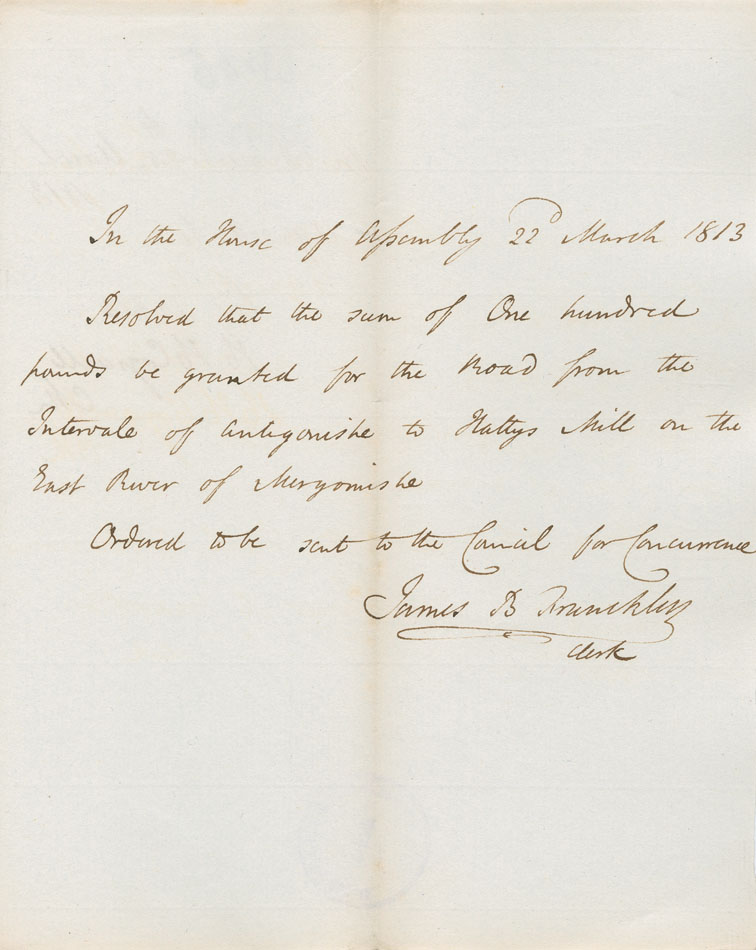 In the House of Assembly 22d March 1813
Resolved that the sum of One hundred
pounds be granted for the Road from the
Intervale of Antigonishe to Hattys Mill on the
East River of Merigomishe
Ordered to be sent to the Council for Concurrence
James B Francklin
Clerk